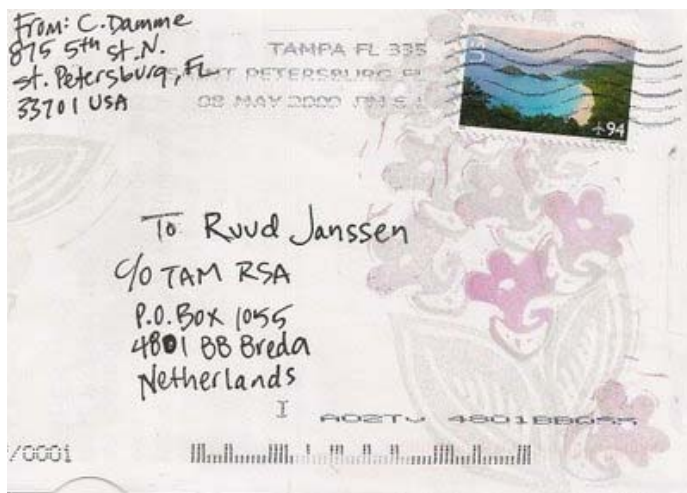 From: C. Damme
875 5th St. N.
St. Petersburg, FL
33701 USA
TAMPA FL 335
SAINT PETERSBURG FL
08 MAY
USA
94
To Ruud Janssen
c/o TAM RSA
P.O. Box 1055
4801 BB Breda
Netherlands
A02TV 4801BB055
/0001